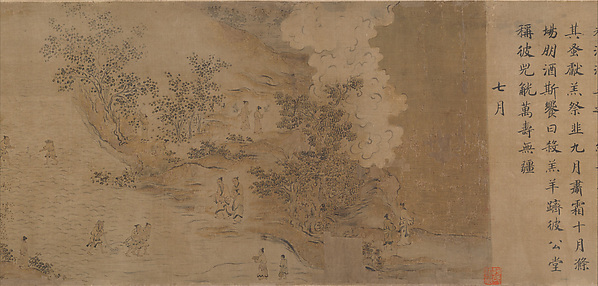 其蚤獻羔祭韭九月肅霜十月滌
場朋酒斯饗曰殺羔羊躋彼公堂
稱彼兕觥萬壽無疆
七月